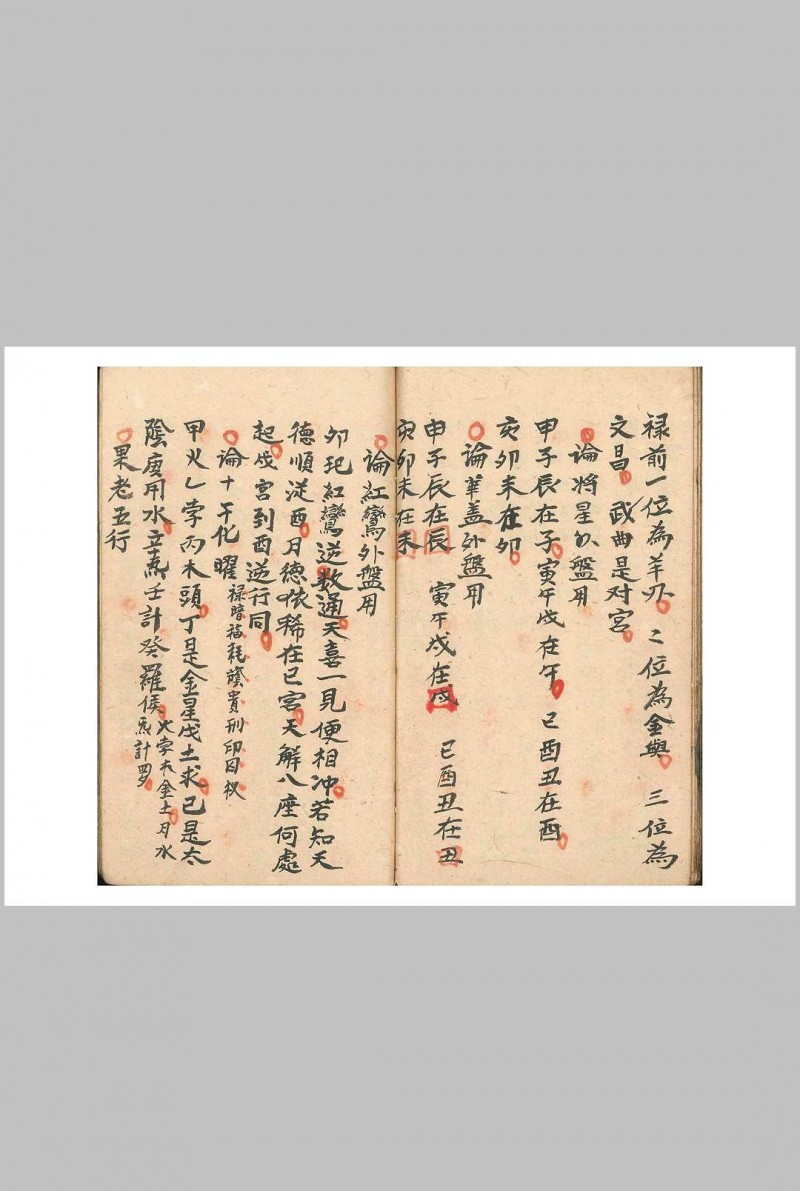 禄前一位為羊刃 二位為金輿 三位為
文昌 武曲是对宮
論將星外盤用
甲子辰在子寅午戌在午 巳酉丑在酉
亥卯未在卯
論華盖外盤用
申子辰在辰 寅午戌在戌 巳酉丑在丑
亥卯未在未
論紅鸞外盤用
卯玘紅鸞逆数通天喜一見便相冲若知天
德順從酉月德依稀在巳宮天解八座何處
起戌宮到酉逆行同
論十干化曜 禄暗福耗蔭貴刑印囚权
甲火乙孛丙木頭丁是金星戊土求己是太
陰庚用水辛炁壬計癸羅侯 火孛木金土月水
炁計罗
果老五行